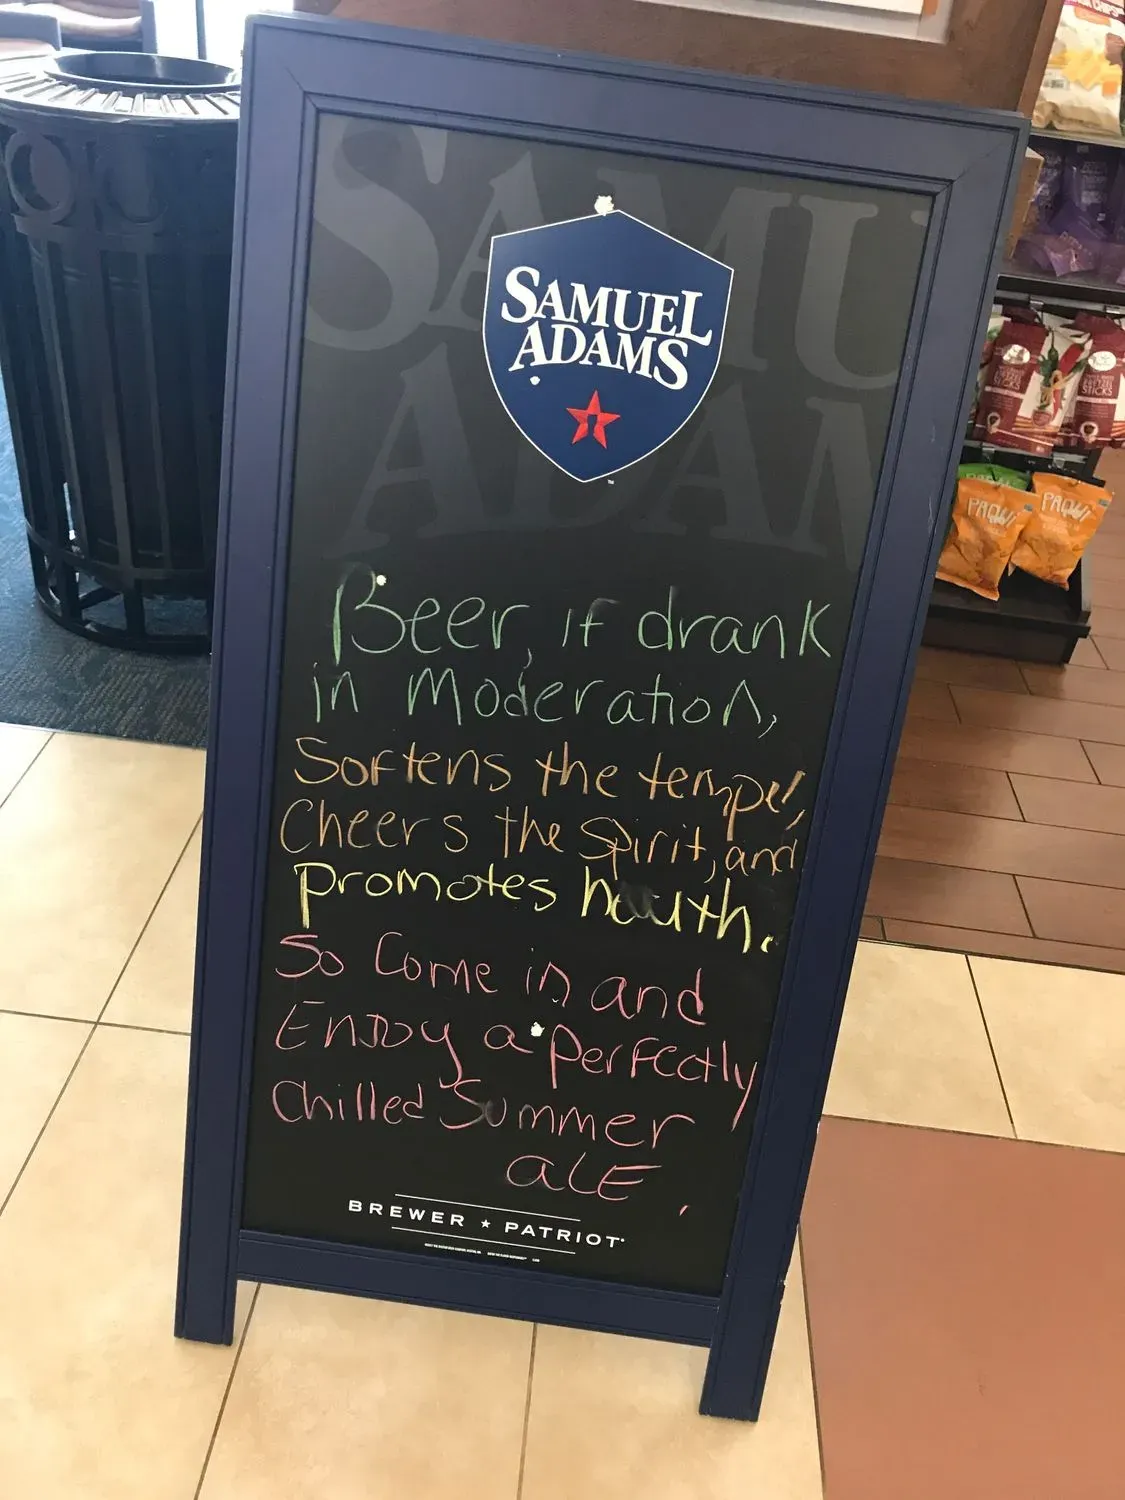 SAMUEL
ADAMS
SAMUEL
ADAMS
Beer, if drank
in Moderation,
Softens the temper,
Cheers the spirit, and
promotes health.
So Come in and
Enjoy a perfectly
Chilled Summer
aLE.
BREWER ★ PATRIOT
PAQUI
PAQUI
STICKS
STICKS